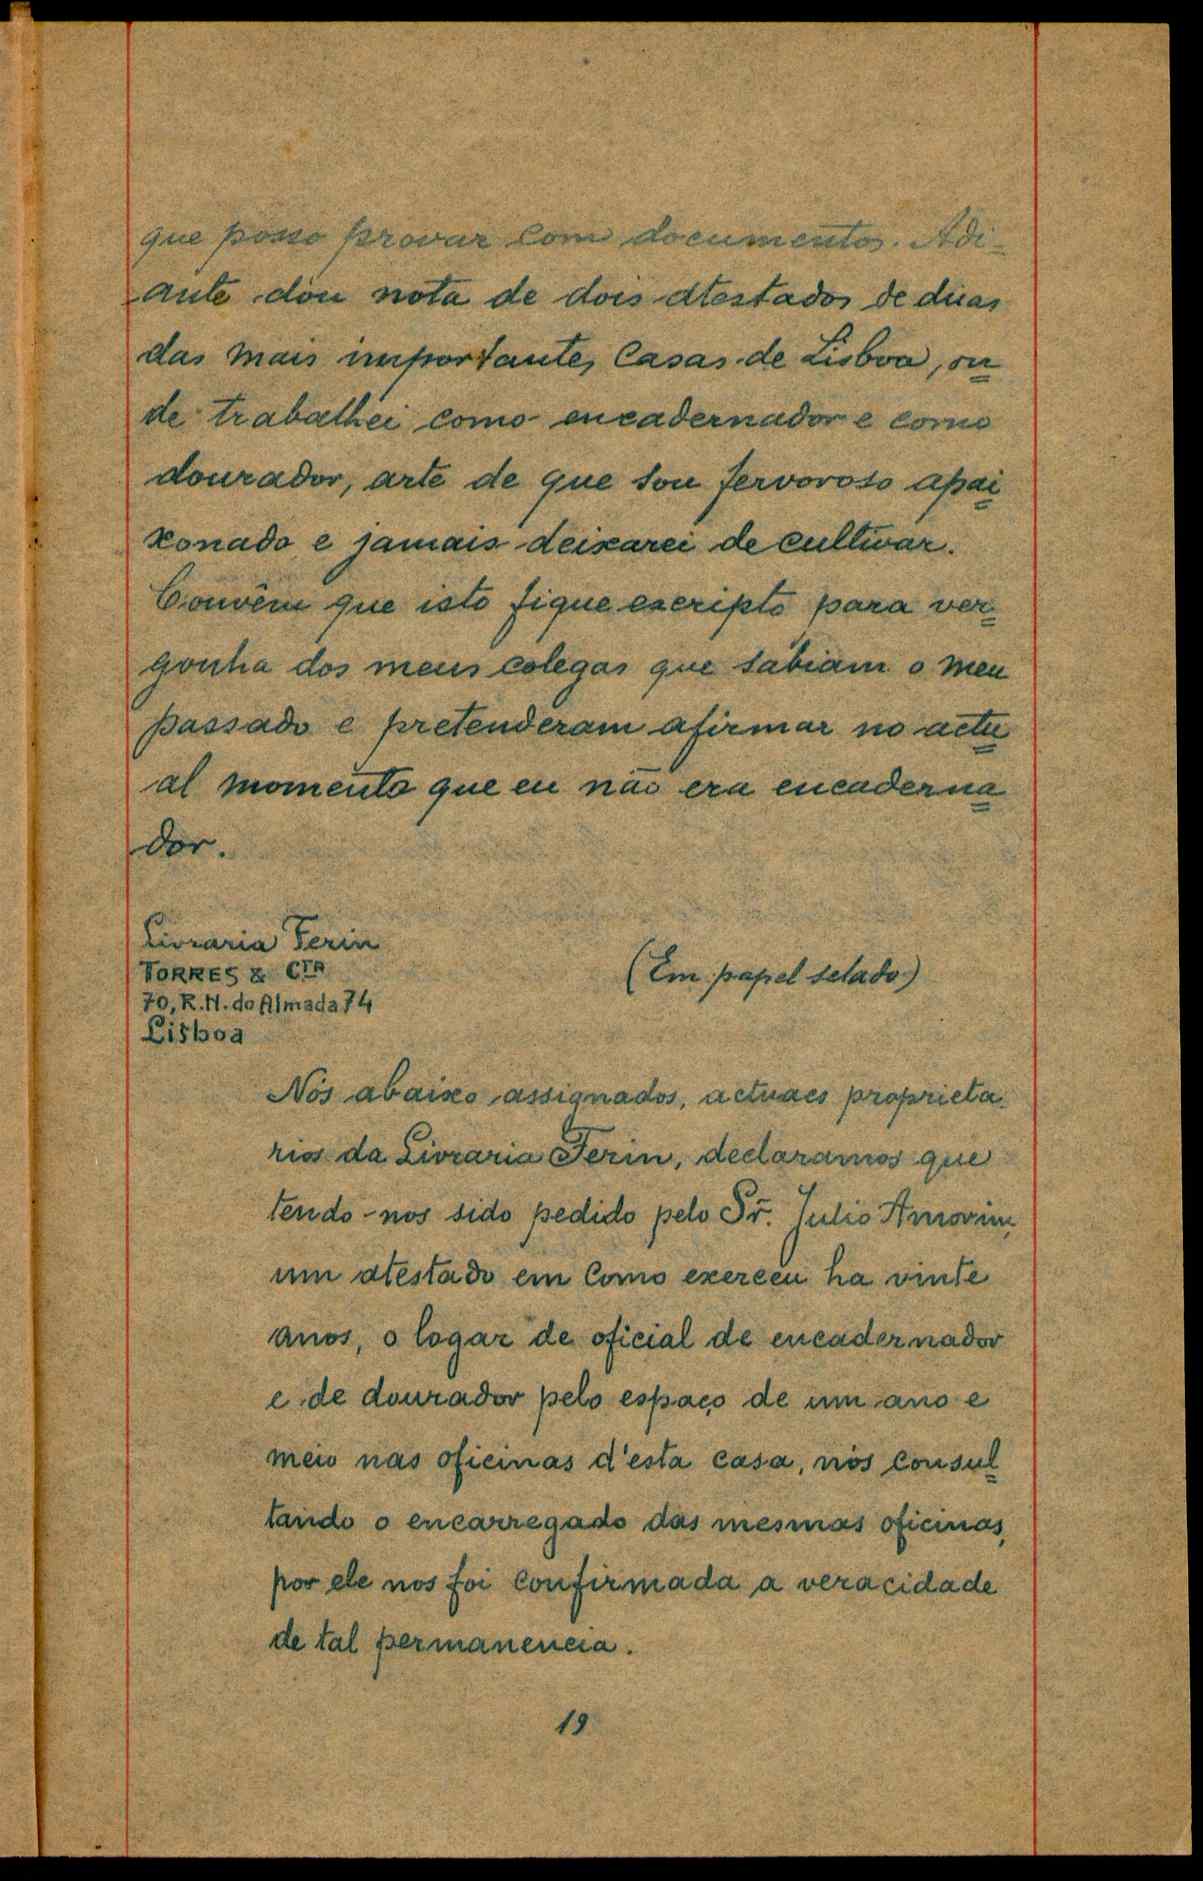 que posso provar com documentos. Adi-
ante dou nota de dois atestados de duas
das mais importantes Casas de Lisboa, on=
de trabalhei como encadernador e como
dourador, arte de que sou fervoroso apai=
xonado e jamais deixarei de cultivar.
Convêm que isto fique escripto para ver=
gonha dos meus colegas que sabiam o meu
passado e pretenderam afirmar no actu=
al momento que eu não era encaderna=
dor.
Livraria Ferin
TORRES & CTA
70, R. N. do Almada 74
Lisboa
(Em papel selado)
Nós abaixo assignados, actuaes proprieta-
rios da Livraria Ferin, declaramos que
tendo-nos sido pedido pelo Sr. Julio Amorim,
um atestado em como exerceu ha vinte
anos, o logar de oficial de encadernador
e de dourador pelo espaço de um ano e
meio nas oficinas d'esta casa, nós consul=
tando o encarregado das mesmas oficinas,
por ele nos foi confirmada a veracidade
de tal permanencia.
19